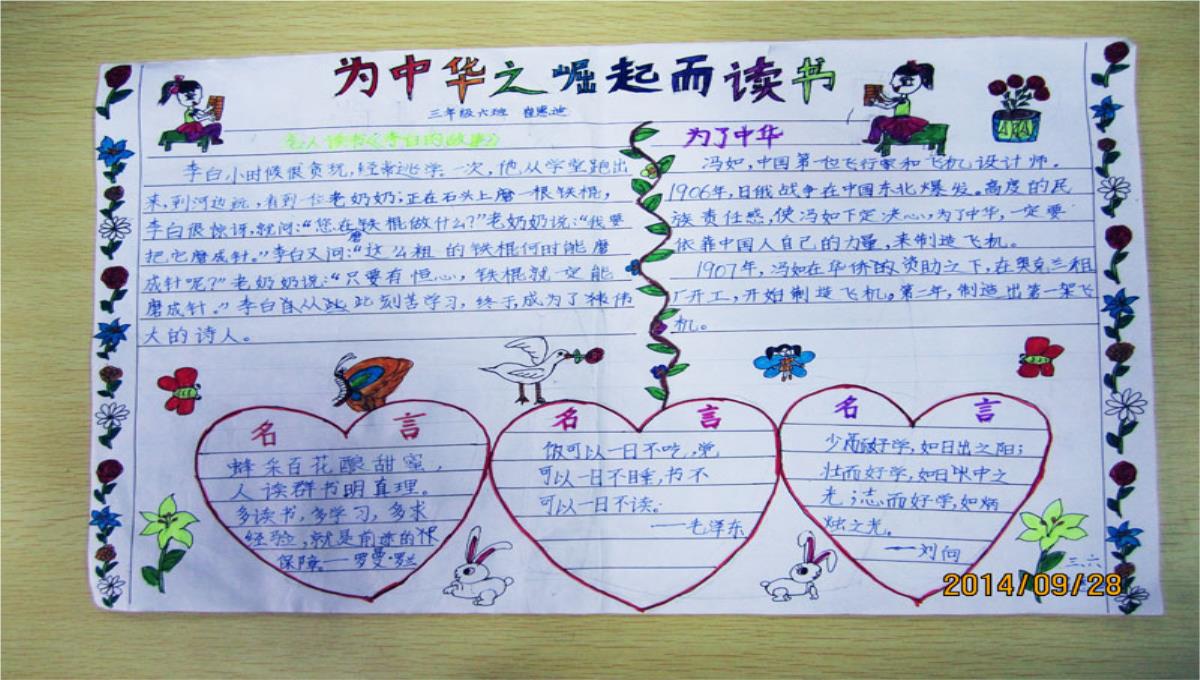 为中华之崛起而读书
三年级六班
名人读书《李白的故事》
李白小时候很贪玩,经常逃学。一次,他从学堂跑出
来,到河边玩,看到一位老奶奶,正在石头上磨一根铁棍,
李白很惊讶,就问:“您在磨铁棍做什么?”老奶奶说:“我要
把它磨成针。”李白又问:“这么粗的铁棍何时能磨
成针呢?”老奶奶说:“只要有恒心,铁棍就一定能
磨成针。”李白自从此刻苦学习,终于成为了伟
大的诗人。
为了中华
冯如,中国第一位飞行家和飞机设计师。
1906年,日俄战争在中国东北爆发。高度的民
族责任感,使冯如下定决心,为了中华,一定要
依靠中国人自己的力量,来制造飞机。
1907年,冯如在华侨的资助之下,在奥克兰租
厂开工,开始制造飞机。第二年,制造出第一架飞
机。
名言
蜂采百花酿甜蜜,
人读群书明真理。
多读书,多学习,多求
经验,就是前途的
保障。——罗曼·罗兰
名言
饭可以一日不吃,觉
可以一日不睡,书不
可以一日不读。
——毛泽东
名言
少而好学,如日出之阳;
壮而好学,如日中之
光;志而好学,如炳
烛之光。
——刘向
三、六
2014/09/28